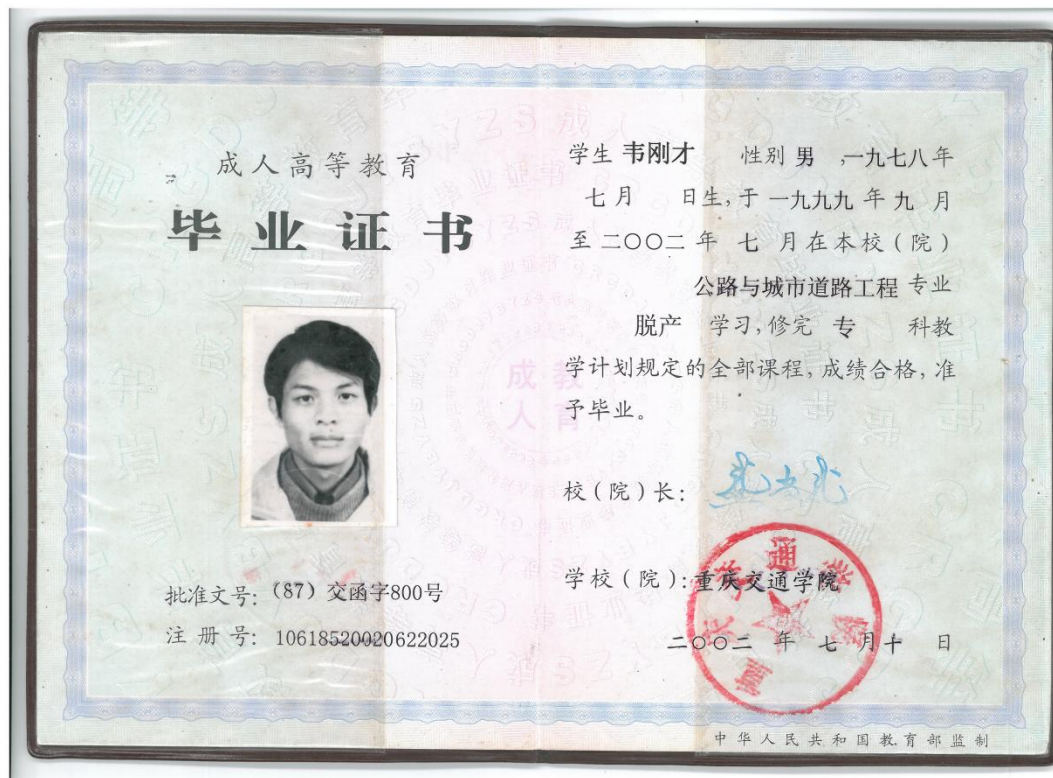 成人高等教育
毕业证书
批准文号:(87)交函字800号
注册号:10618520020622025
学生 韦刚才 性别 男 ,一九七八年
七月 日生,于 一九九九 年 九 月
至 二〇〇二 年 七 月在本校(院)
公路与城市道路工程 专业
脱产 学习,修完 专 科教
学计划规定的全部课程,成绩合格,准
予毕业。
校(院)长:
学校(院):重庆交通学院
二〇〇二 年 七 月十 日
重庆交通学院
成教
人育
中华人民共和国教育部监制